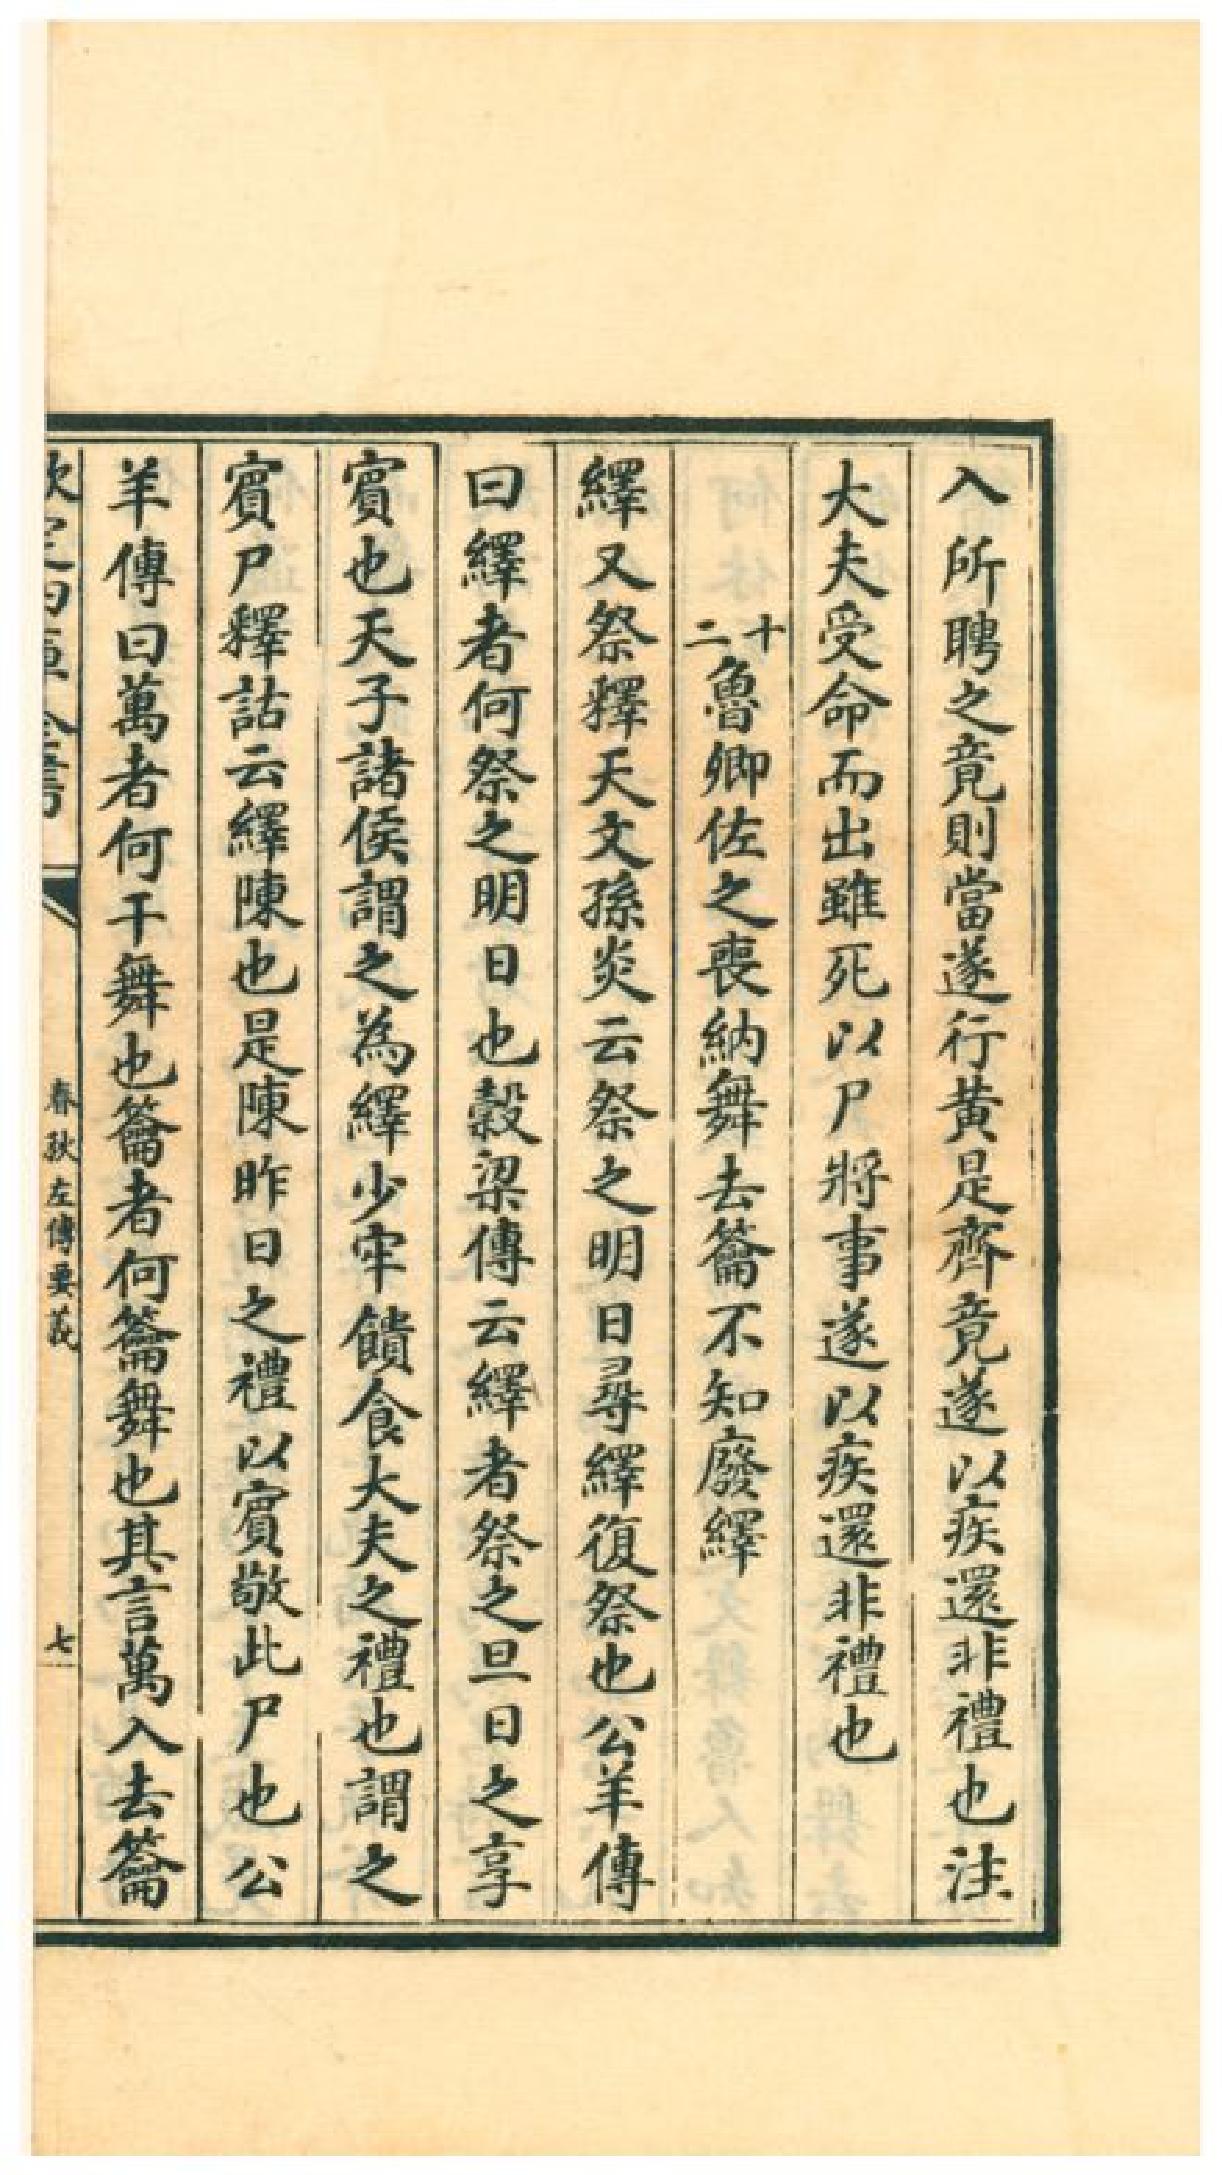 入所聘之竟則當遂行黃是齊竟遂以疾還非禮也注
大夫受命而出雖死以尸將事遂以疾還非禮也
十二魯卿佐之喪納舞去籥不知廢繹
繹又祭釋天文孫炎云祭之明日尋繹復祭也公羊傳
曰繹者何祭之明日也穀梁傳云繹者祭之旦日之享
賓也天子諸侯謂之為繹少牢饋食大夫之禮也謂之
賓尸釋詁云繹陳也是陳昨日之禮以賓敬此尸也公
羊傳曰萬者何干舞也籥者何籥舞也其言萬入去籥
欽定四庫全書
春秋左傳要義
七